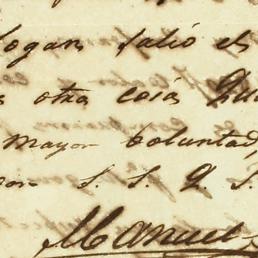 salió el
otra cosa
mayor voluntad
S. S. Q. S.
Manuel